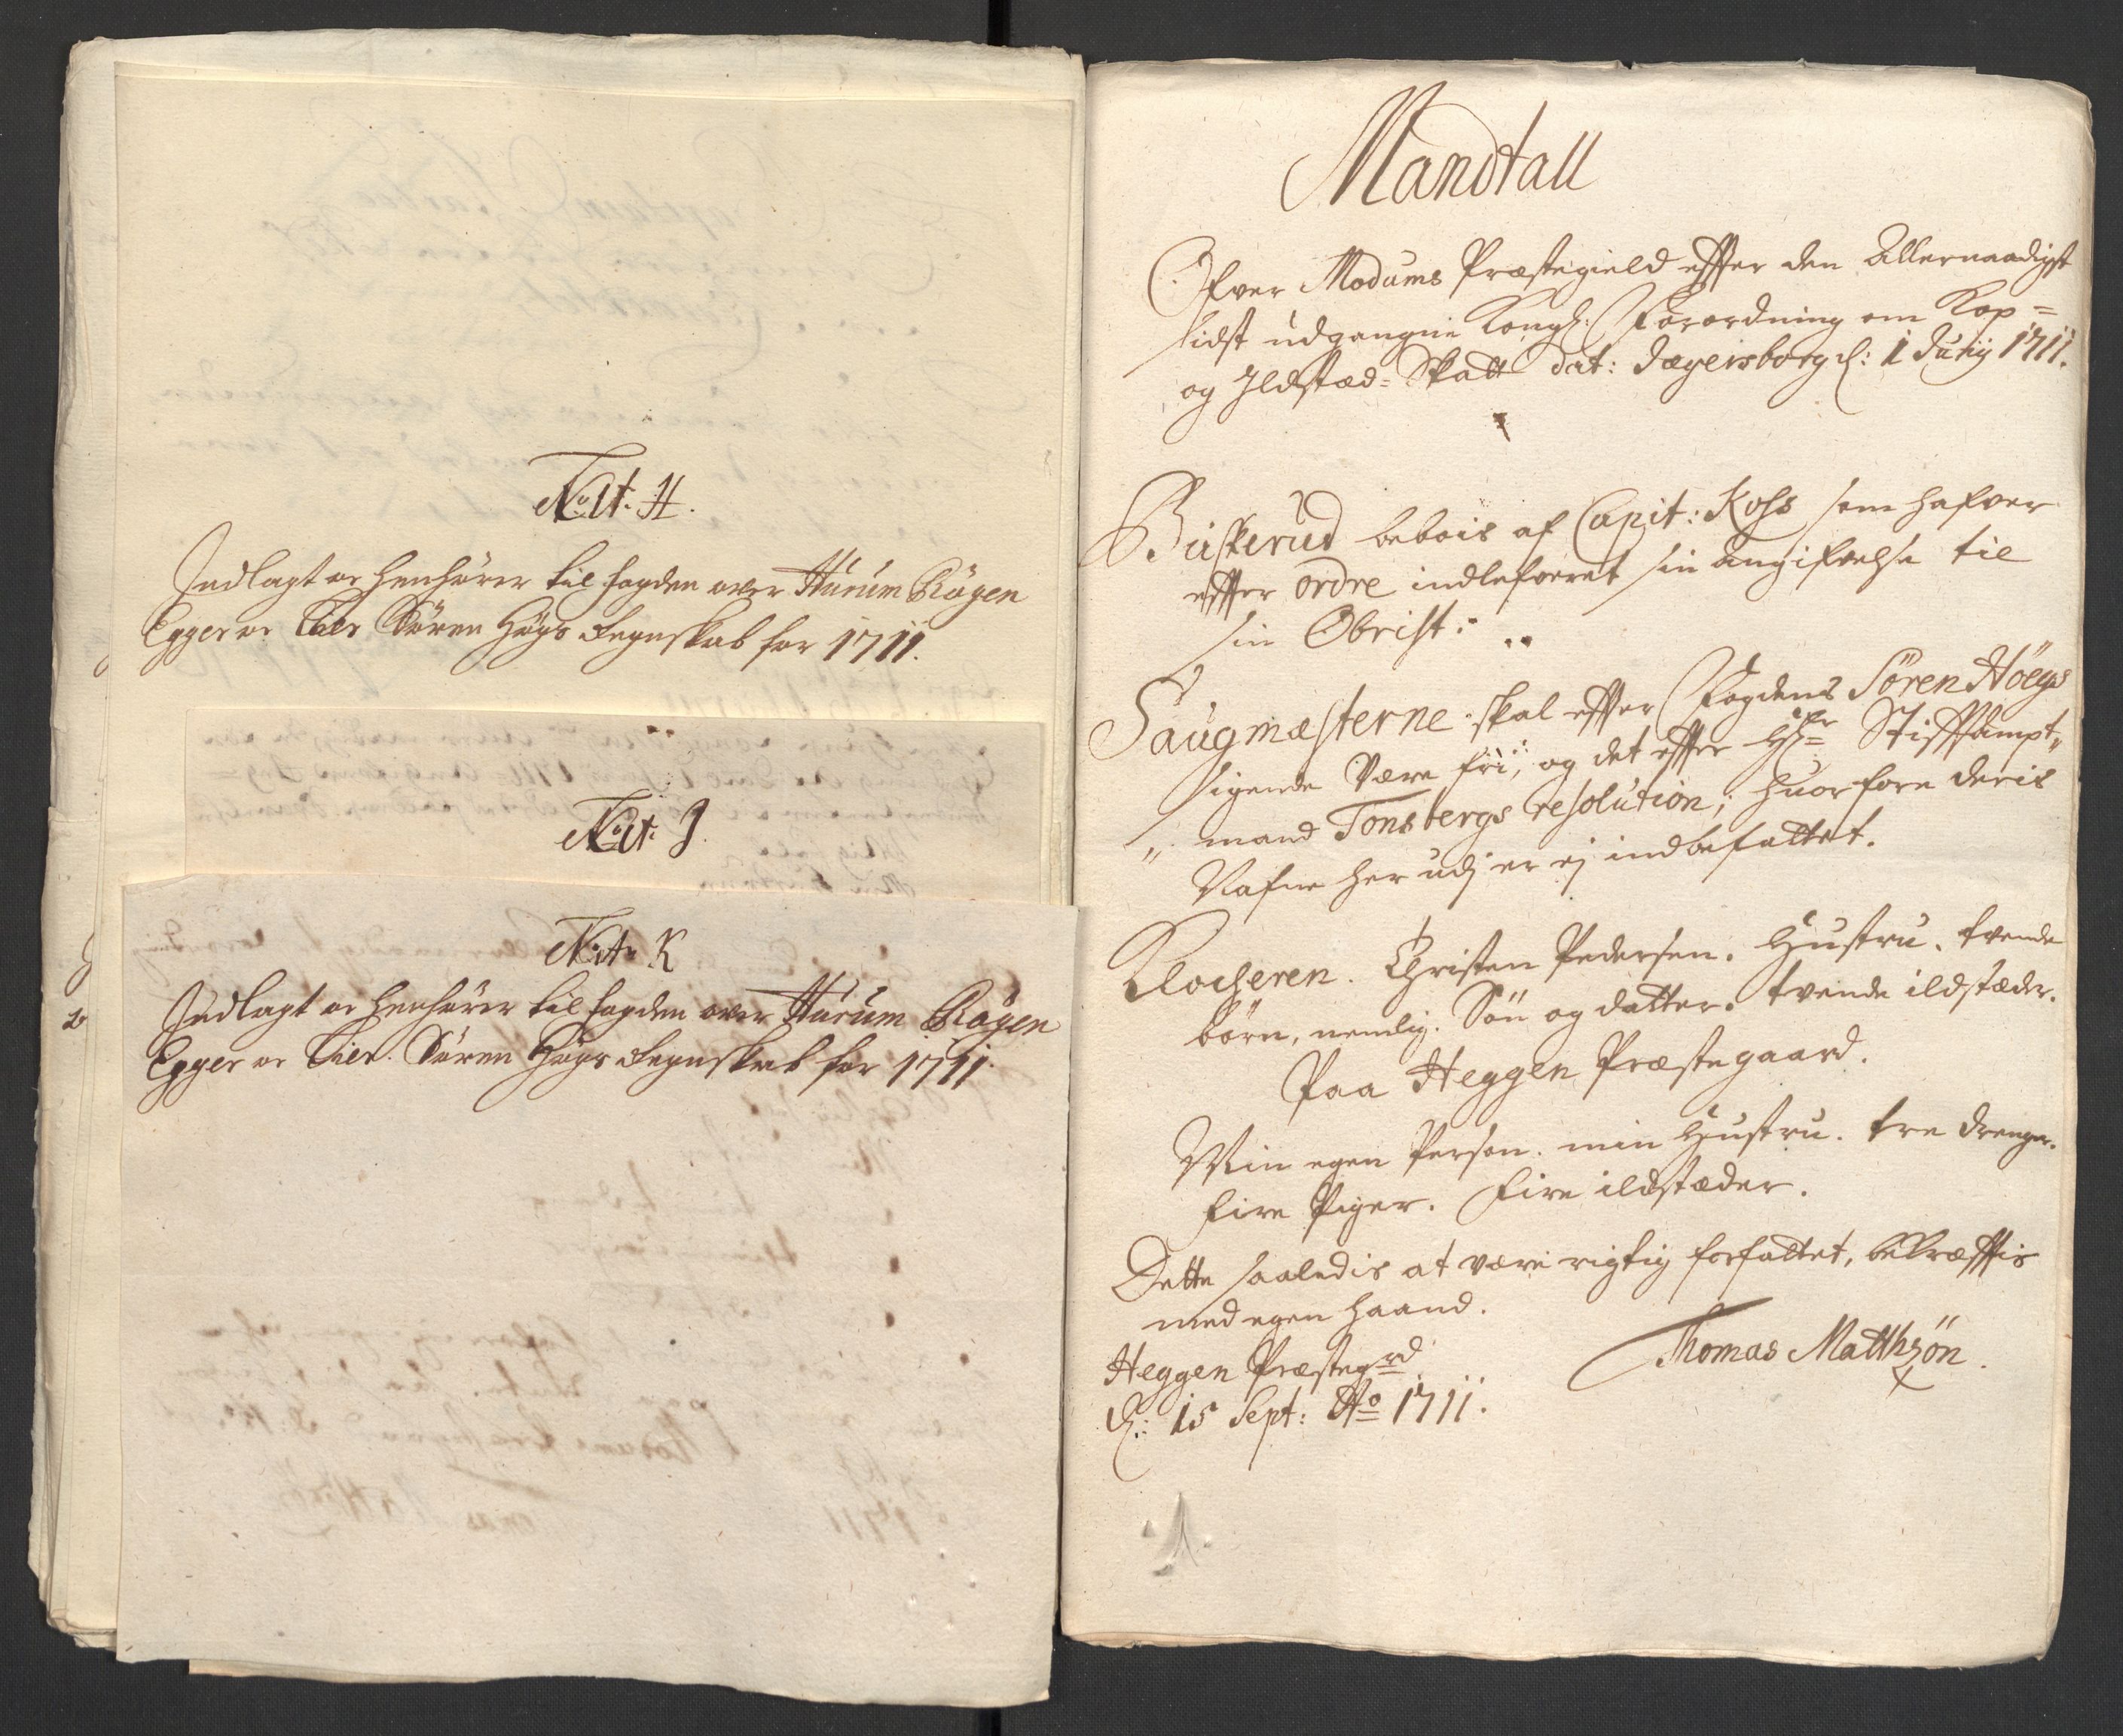 No Lt. H.
Indlagt og henhører til fogden over Hurum Røgen
Egger og Lier Søren Høgs Regnskab for 1711.
No Lt: J.
No Lt: K
Indlagt og henhører til fogden over Hurum Røgen
Egger og Lier. Søren Høgs Regnskab for 1711.
Mandtall
Ofver Modums Præstegield effter den Allernaadigst
sidst udgangne Kongl: Forordning om Kop=
og Ildstæd=Skatt dat: Jægersborg d: 1 Julij 1711.
Buskerud bebois af Capit: Koss som hafver
effter ordre indlefveret sin Angifvelse til
sin Obrist:
Saugmæsterne skal effter Fogdens Sören Höegs
sigende være fri, og det effter Hr Stifftampt„
„mand Tonsbergs resolution; huorfore deris
Nafne her udj er ej indbefattet.
Klocheren. Christen Pedersen. Hustru. tvende
børn, nemlig. Søn og datter. tvende ildstæder.
Paa Heggen Præstegaard.
Min egen Person. min Hustru. tre drenger.
fire Piger. fire ildstæder.
Dette saaledis at være rigtig forfattet, bekræfftis
med egen haand.
Heggen Præstegrd
d: 15 Sept: Ao 1711.
Thomas Matthsön.